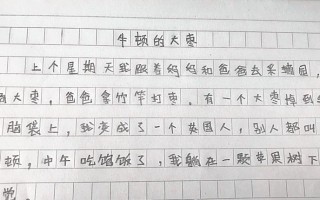 牛顿的大枣
上个星期天我跟着妈妈和爸爸去采摘园，
大枣，爸爸拿竹竿打枣，有一个大枣掉到
脑袋上，我变成了一个英国人，别人都叫
顿，中午吃馅饼了，我躺在一颗苹果树下
觉。